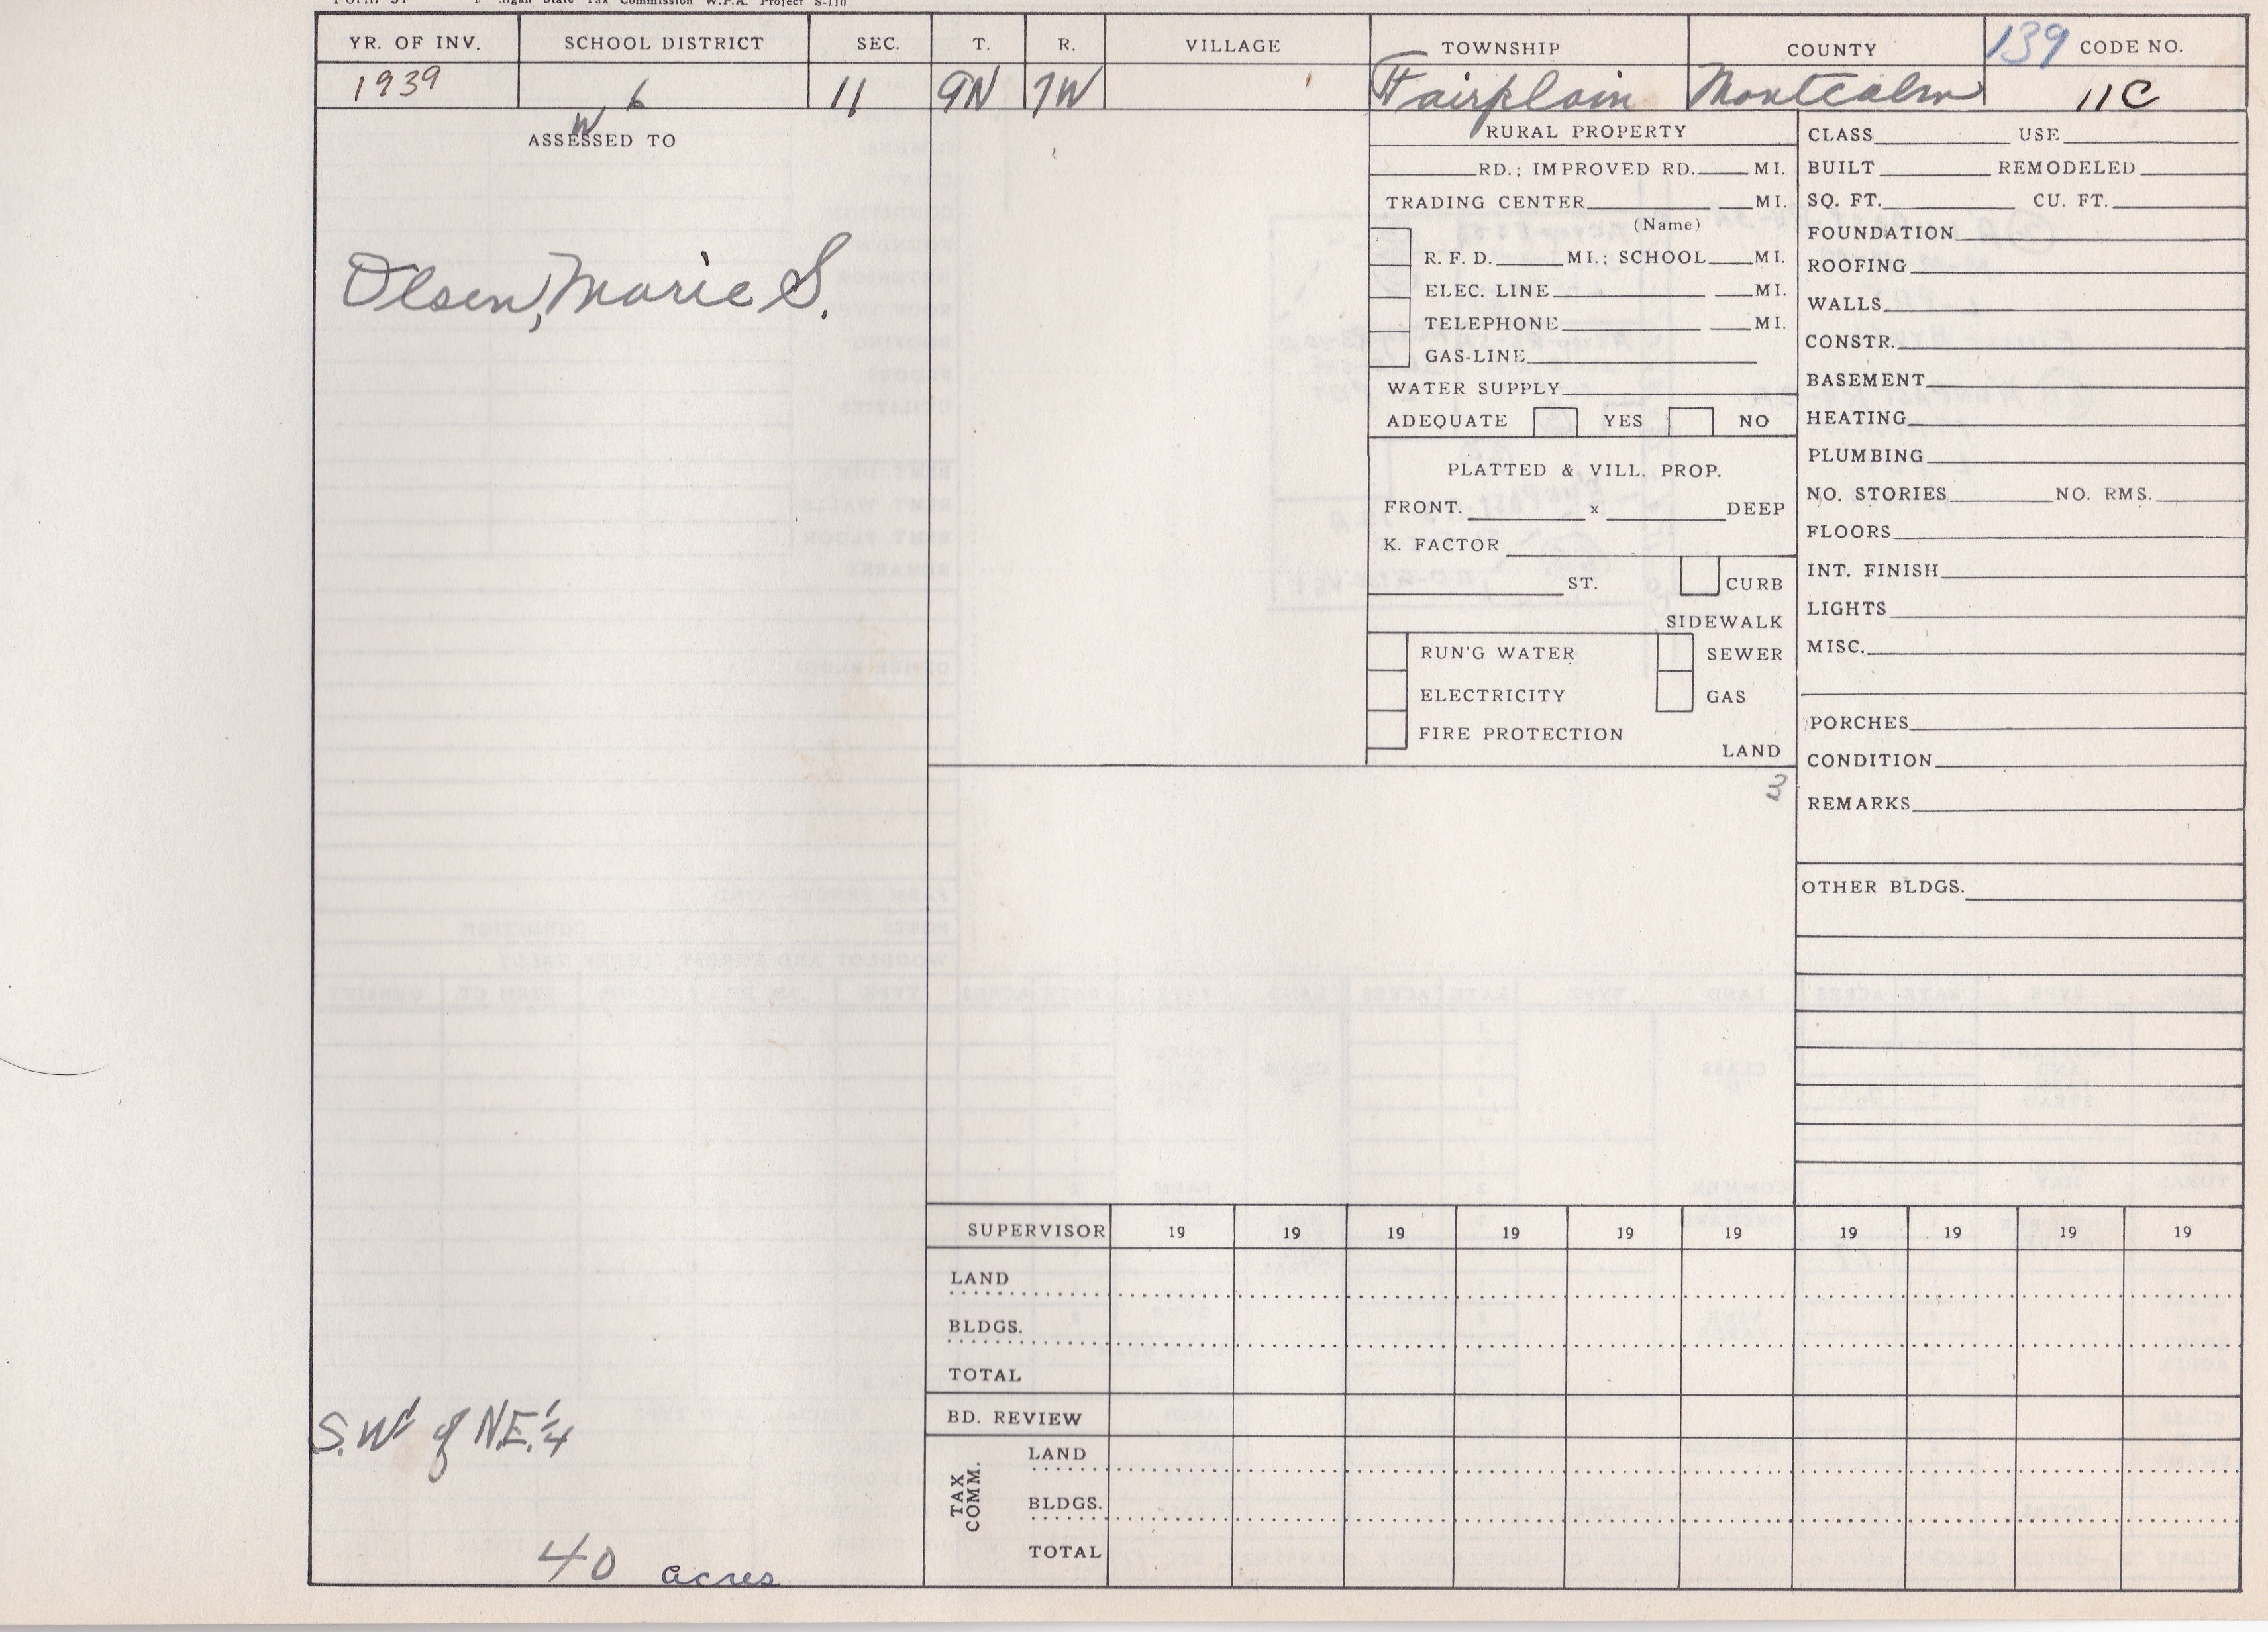 Tax Commission W.P.A. Project S-110
YR. OF INV. SCHOOL DISTRICT SEC. T. R. VILLAGE TOWNSHIP COUNTY 139 CODE NO.
1939 6 11 9N 7W Fairplain Montcalm 11C
W
ASSESSED TO
Olsen, Marie S.
S.W 1/4 of N.E. 1/4
40 acres
RURAL PROPERTY
RD.; IMPROVED RD. MI.
TRADING CENTER MI.
(Name)
R. F. D. MI.; SCHOOL MI.
ELEC. LINE MI.
TELEPHONE MI.
GAS-LINE
WATER SUPPLY
ADEQUATE YES NO
PLATTED & VILL. PROP.
FRONT. x DEEP
K. FACTOR
ST. CURB
SIDEWALK
RUN'G WATER SEWER
ELECTRICITY GAS
FIRE PROTECTION
LAND
3
CLASS USE
BUILT REMODELED
SQ. FT. CU. FT.
FOUNDATION
ROOFING
WALLS
CONSTR.
BASEMENT
HEATING
PLUMBING
NO. STORIES NO. RMS.
FLOORS
INT. FINISH
LIGHTS
MISC.
PORCHES
CONDITION
REMARKS
OTHER BLDGS.
SUPERVISOR 19 19 19 19 19 19 19 19 19 19
LAND
BLDGS.
TOTAL
BD. REVIEW
TAX COMM.
LAND
BLDGS.
TOTAL